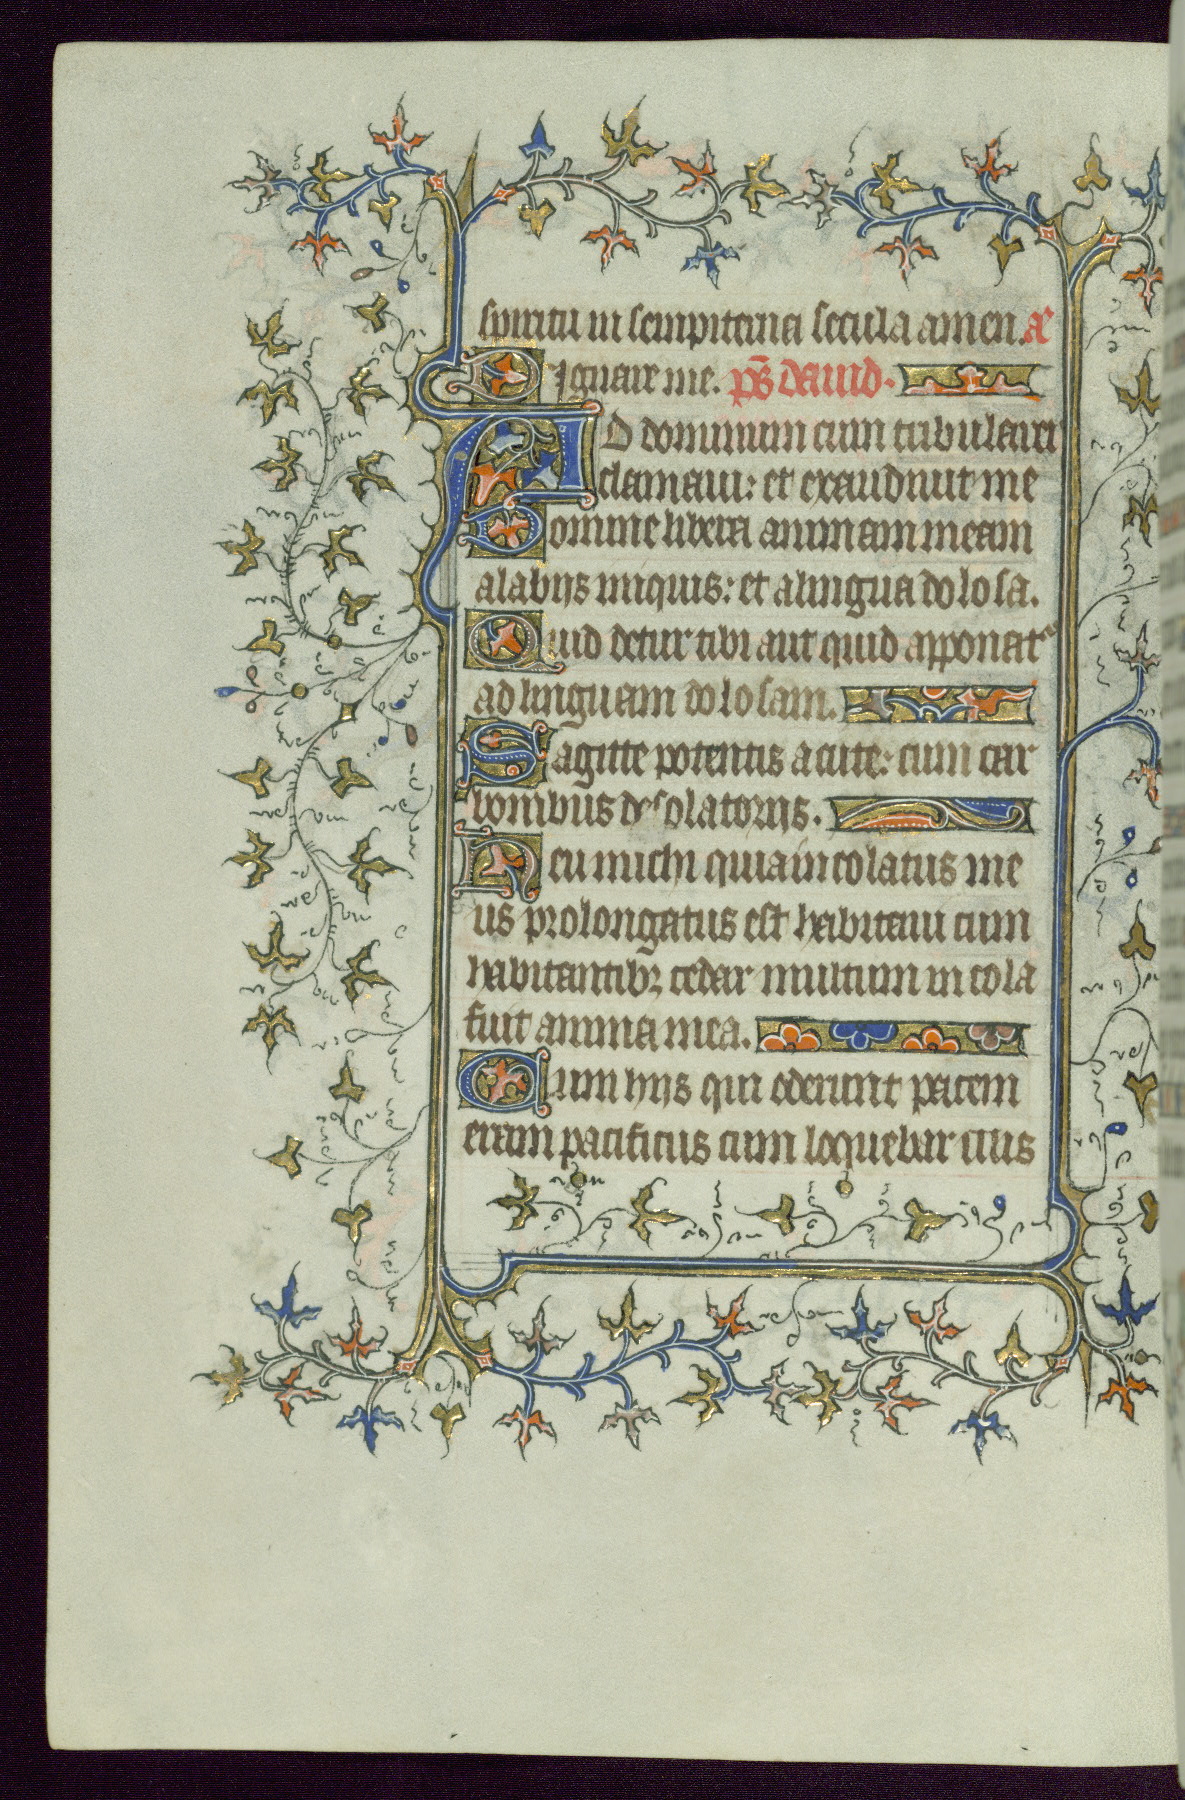 spiritu in sempiterna secula amen. añ
Ignare me. p̄s dauid.
AD dominum cum tribularer
clamaui: et exaudiuit me
Domine libera animam meam
alabijs iniquis: et alingua dolosa.
Quid detur tibi aut quid apponat᷑
ad linguam dolosam.
Sagitte potentis acute: cum car
bonibus desolatorijs.
Heu michi quia incolatus me
us prolongatus est habitaui cum
habitantibꝫ cedar multum incola
fuit anima mea.
Cum hijs qui oderunt pacem
eram pacificus cum loquebar illis